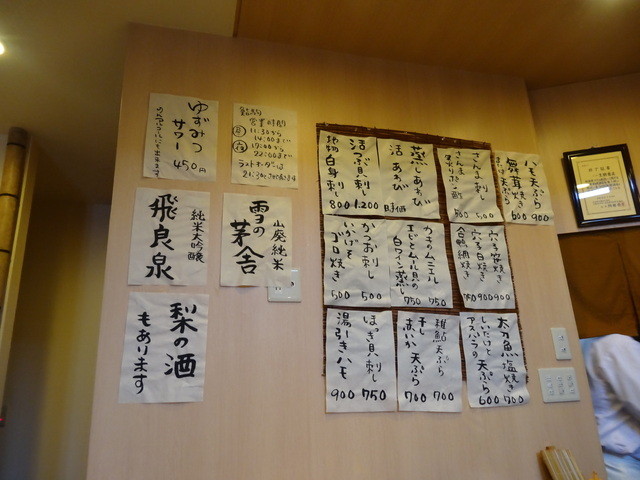 ゆずみつ
サワー
450円
営業時間
11:30から
14:00まで
22:00まで
ラストオーダーは
飛良泉
純米大吟醸
山廃純米
雪の
茅舎
梨の酒
もあります
活つぶ貝刺し 1,200
地物白身刺し 800
蒸しあわび
活あわび
時価
さんま刺し 500
ハモ天ぷら 900
舞茸焼き 600
かつお刺し 500
いかげそ
ゴロ焼き 500
カキのムニエル 750
エビとムール貝の
白ワイン蒸し 750
穴子笹焼き 900
穴子白焼き 900
合鴨網焼き
ほっき貝刺し 750
湯引きハモ 900
稚鮎天ぷら 700
天ぷら 700
太刀魚塩焼き 700
しいたけと
アスパラの天ぷら 600